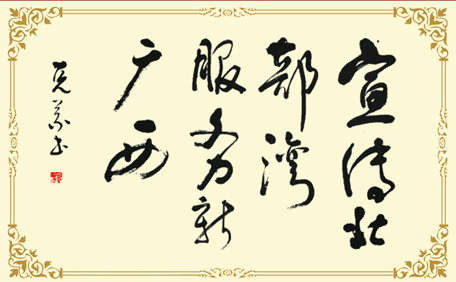 宣传北
部湾
服务新
广西